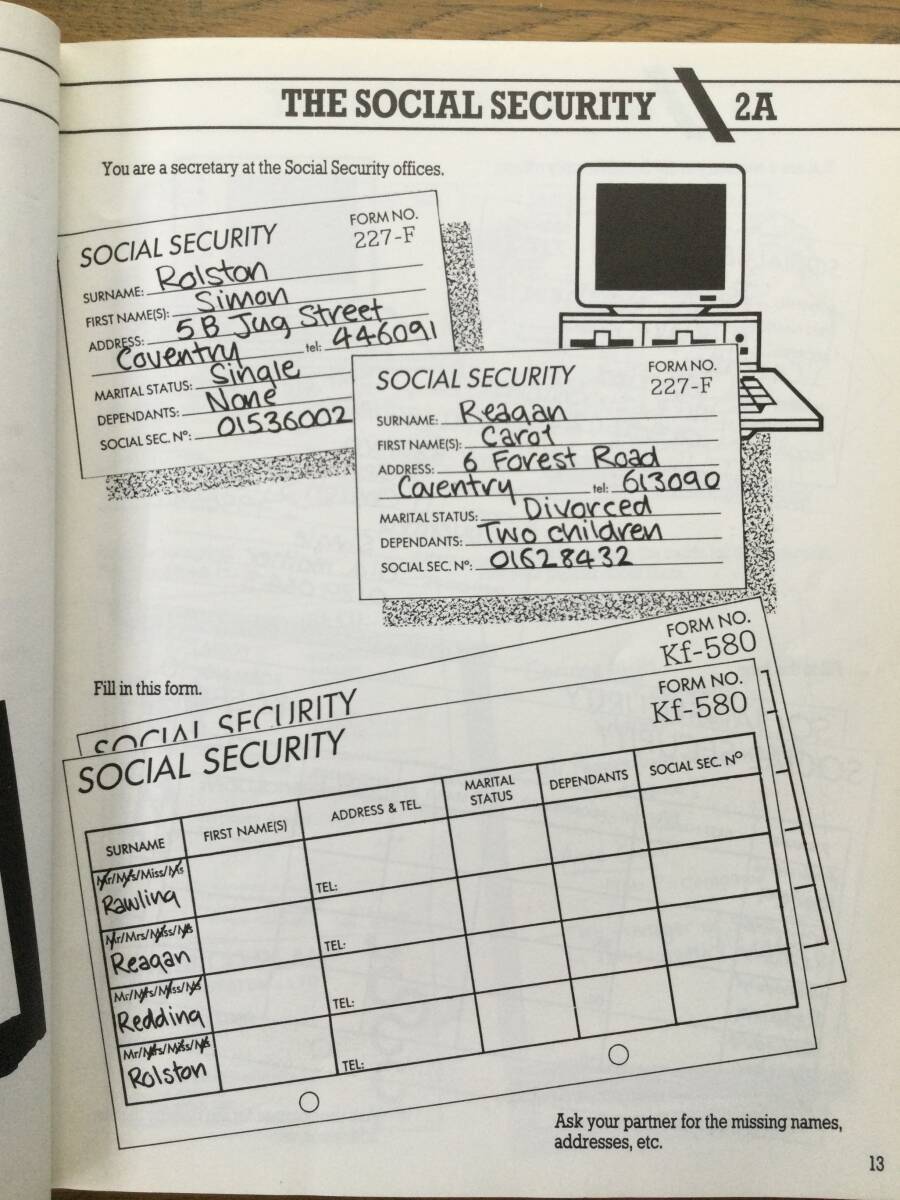 THE SOCIAL SECURITY 2A
You are a secretary at the Social Security offices.
SOCIAL SECURITY
FORM NO.
227-F
SURNAME: Rolston
FIRST NAME(S): Simon
ADDRESS: 5B Jug Street
Coventry tel: 446091
MARITAL STATUS: Single
DEPENDANTS: None
SOCIAL SEC. Nº: 01536002
SOCIAL SECURITY
FORM NO.
227-F
SURNAME: Reagan
FIRST NAME(S): Carol
ADDRESS: 6 Forest Road
Coventry tel: 613090
MARITAL STATUS: Divorced
DEPENDANTS: Two children
SOCIAL SEC. Nº: 01628432
Fill in this form.
SOCIAL SECURITY
FORM NO.
Kf-580
SOCIAL SECURITY
FORM NO.
Kf-580
SURNAME FIRST NAME(S) ADDRESS & TEL MARITAL STATUS DEPENDANTS SOCIAL SEC. Nº
Mr/Mrs/Miss/Ms
Rawling
TEL:
Mr/Mrs/Miss/Ms
Reagan
TEL:
Mr/Mrs/Miss/Ms
Redding
TEL:
Mr/Mrs/Miss/Ms
Rolston
TEL:
Ask your partner for the missing names,
addresses, etc.
13